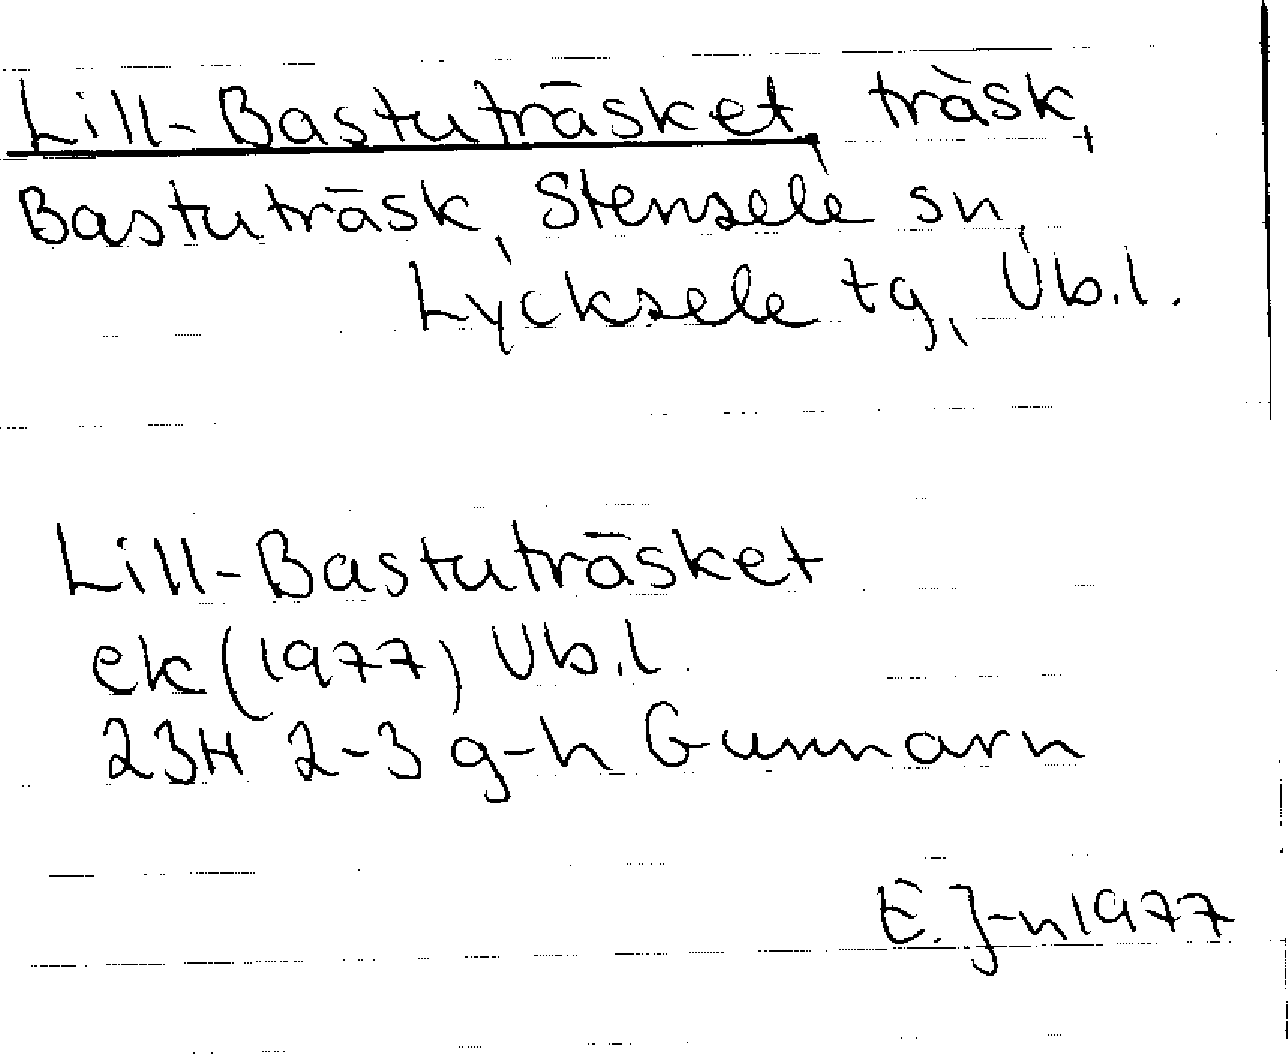 Lill-Bastuträsket, träsk,
Bastuträsk, Stensele sn,
Lycksele tg, Vb.l.
Lill-Bastuträsket
ek (1977) Vb.l.
23H 2-3 g-h Gunnarn
E. J-n 1977